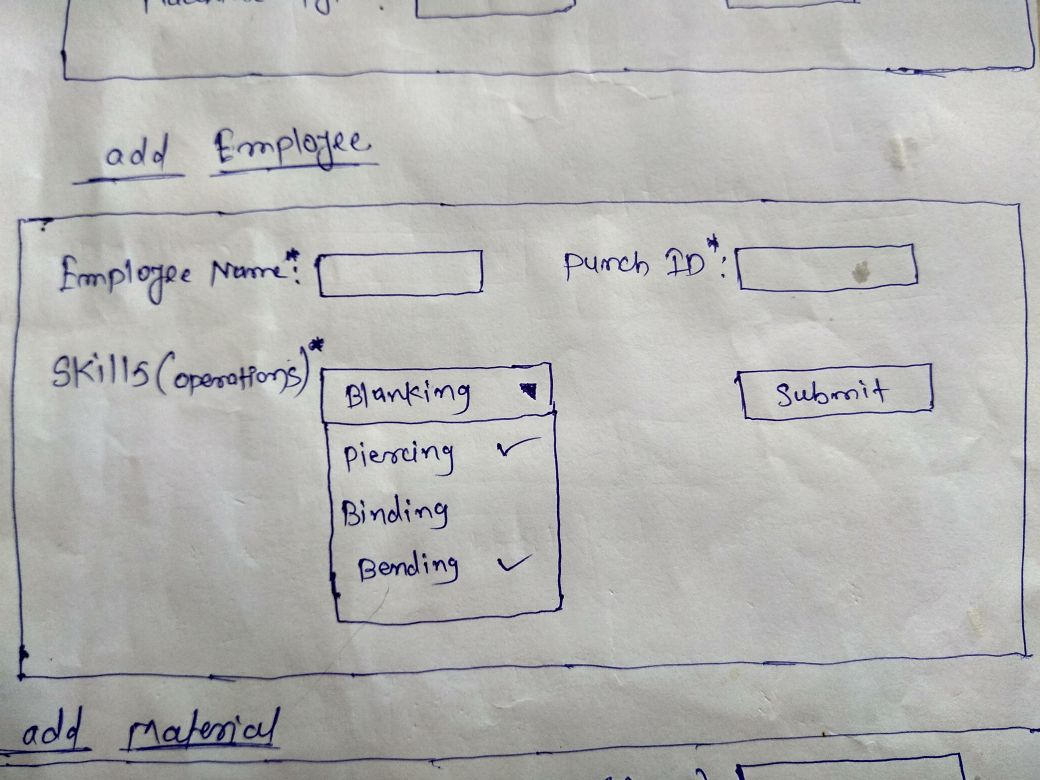 add Employee
Employee Name*: Punch ID*:
Skills (operations)* Blanking Submit
Piercing ✓
Binding
Bending ✓
add Material